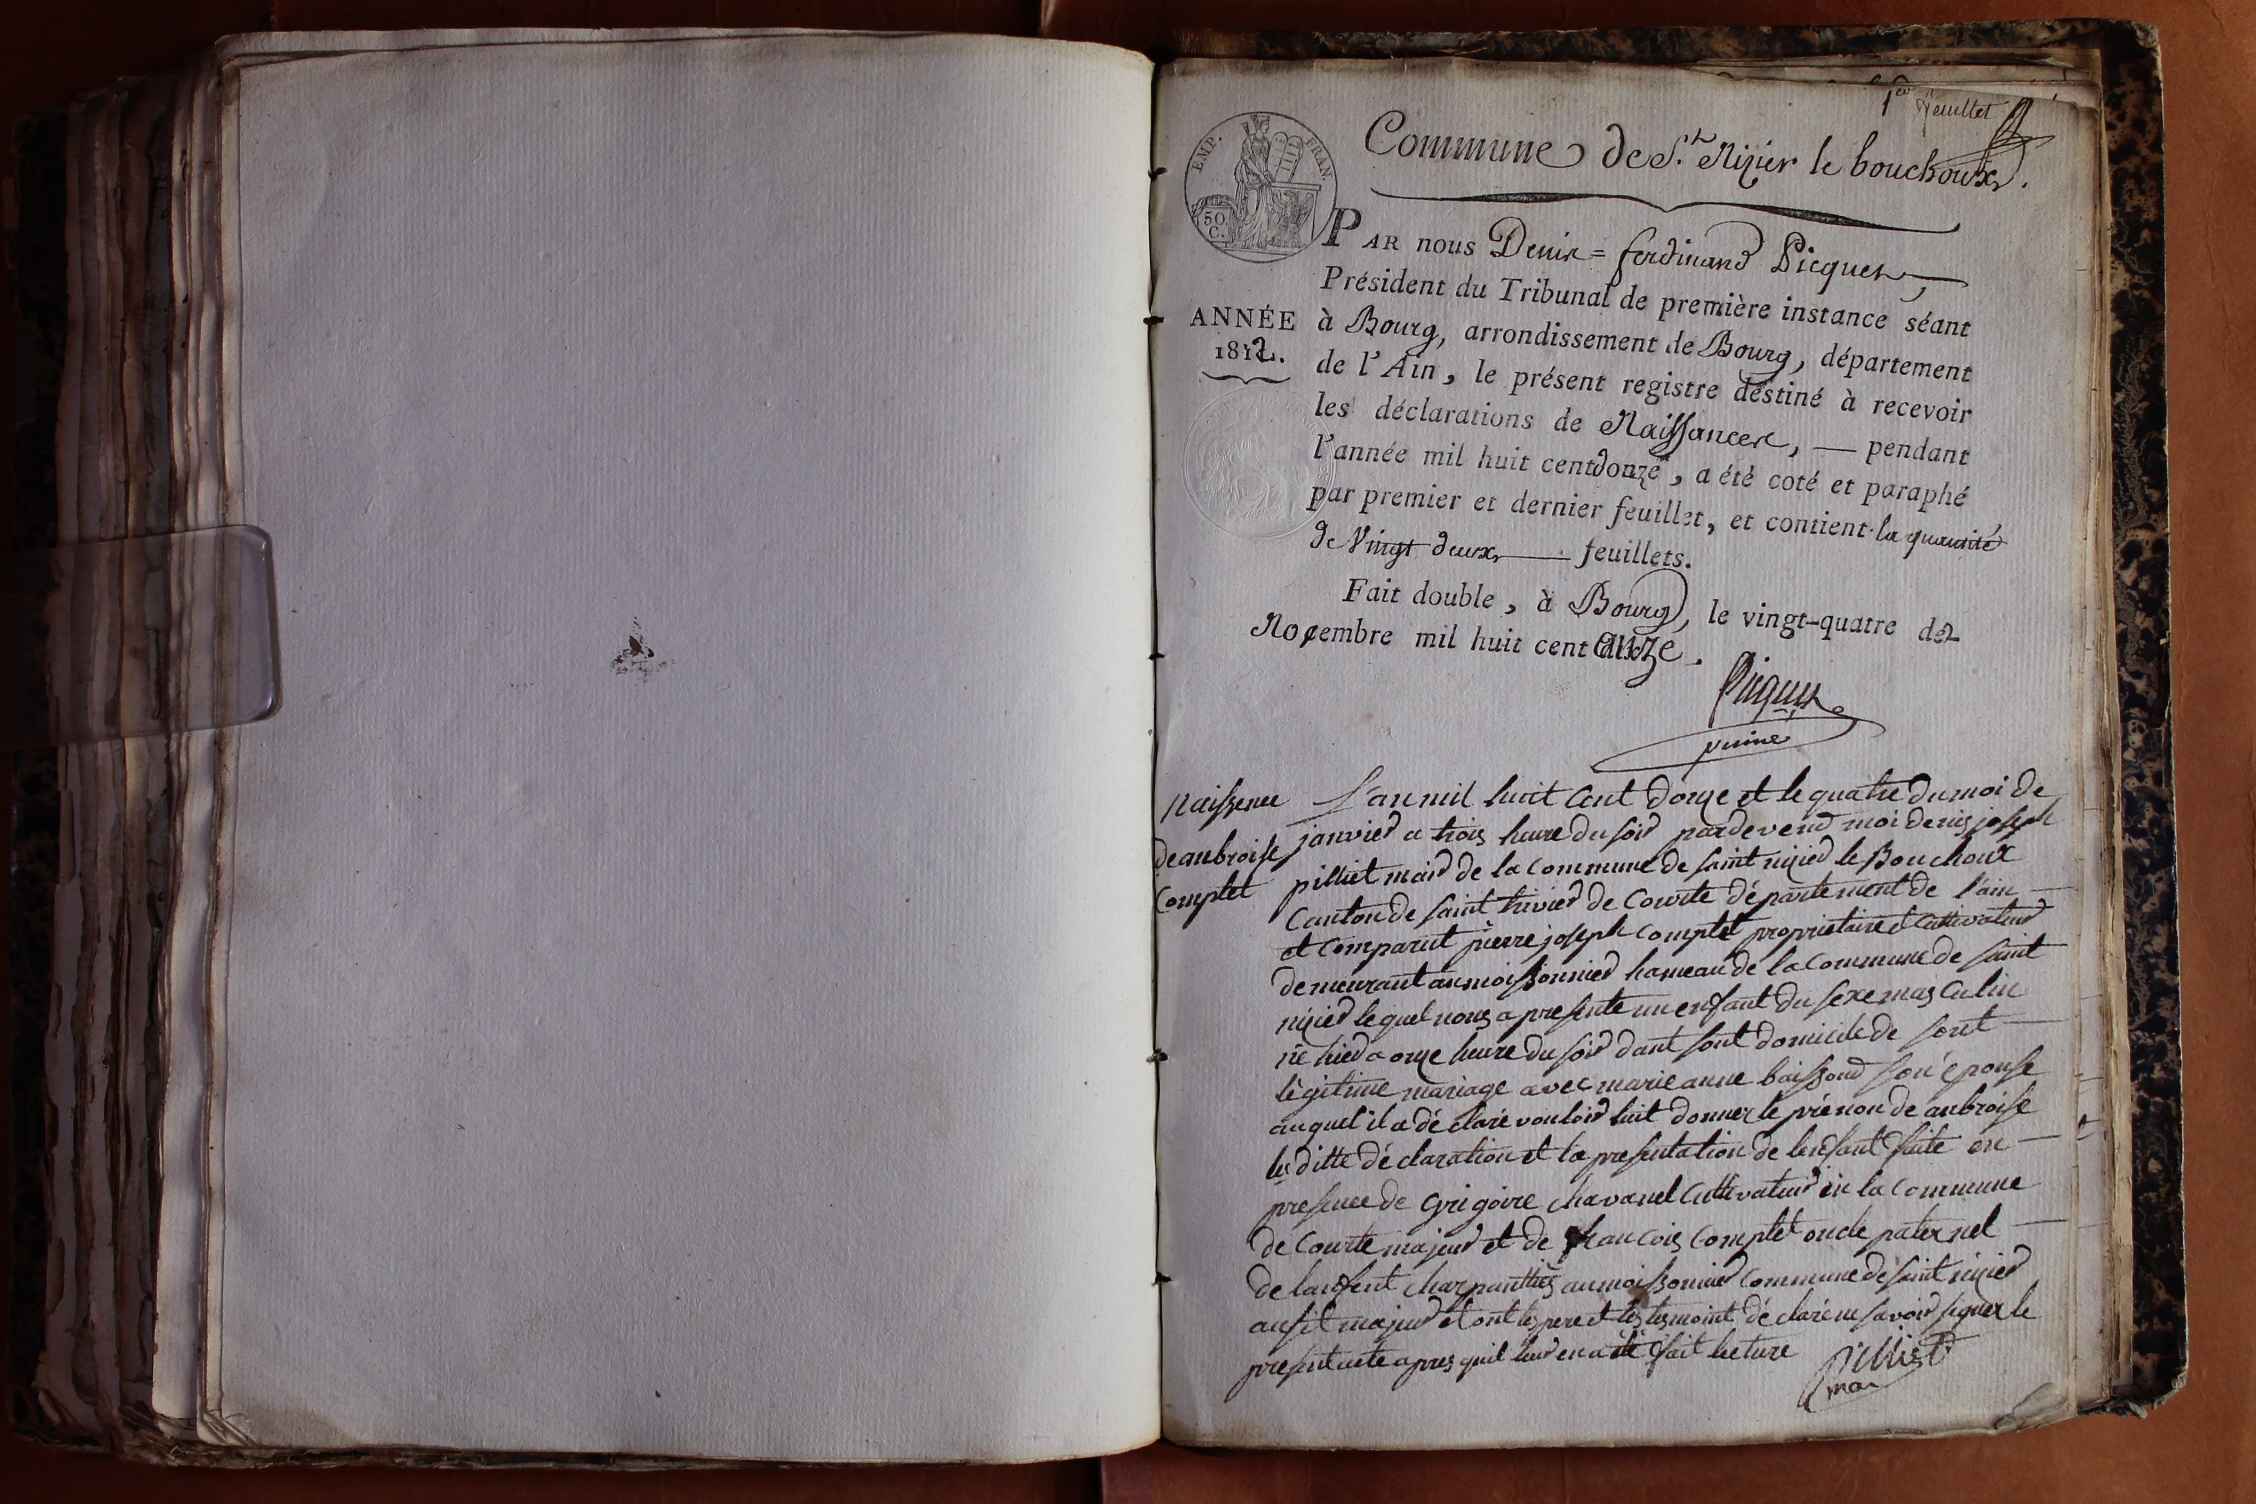 1er feuillet
Commune de St. Nizier le bouchoux.
EMP. FRAN.
50 C.
PAR nous Denis = ferdinand Picquet,
Président du Tribunal de première instance séant
ANNÉE
1812.
à Bourg, arrondissement de Bourg, département
de l'Ain, le présent registre destiné à recevoir
les déclarations de Naissances, — pendant
l'année mil huit cent douze, a été coté et paraphé
par premier et dernier feuillet, et contient la quantité
de Vingt deux — feuillets.
Fait double, à Bourg, le vingt-quatre de
Novembre mil huit cent onze.
Picquet
Naissence
de anbroise
Complet
L'an mil huit cent douze et le quatre du moi de
janvier a trois heure du soir pardevend moi denis joseph
pilliet mair de la commune de saint nizier le Bouchoux
Canton de saint trivier de Courte département de l'ain —
et comparut pierre joseph complet propriétaire et cultivateur
demeurant au moissonnier hameau de la commune de saint
nizier lequel nous a presente un enfant du sexe masculin
né hier a onze heure du soir dant sont domicile de sont —
légitime mariage avec marie anne baissard son épouse
auquel il a déclaré vouloir luit donner le prénon de anbroise
les ditte déclaration et la presentation de lenfant faite en —
presence de Grigoire chavanel cultivateur en la commune
de Courte majeur et de francois complet oncle paternel —
de lanfent charpanttier au moissonnier commune de saint nizier
ausit majeur et ont les pere et les tesmoint déclaré ne savoir signer le
present acte apres quil leur en a été fait lecture
Pilliet
mar